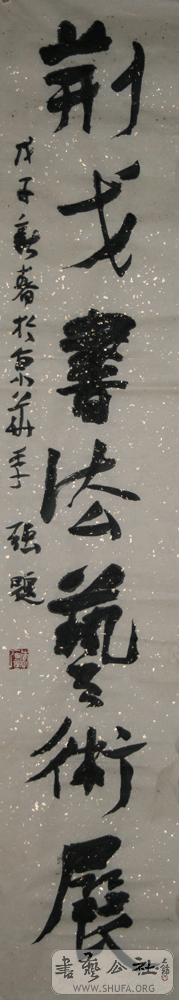 荆戈書法藝術展
戊子新春於京華季強題
書藝公社
WWW.SHUFA.ORG